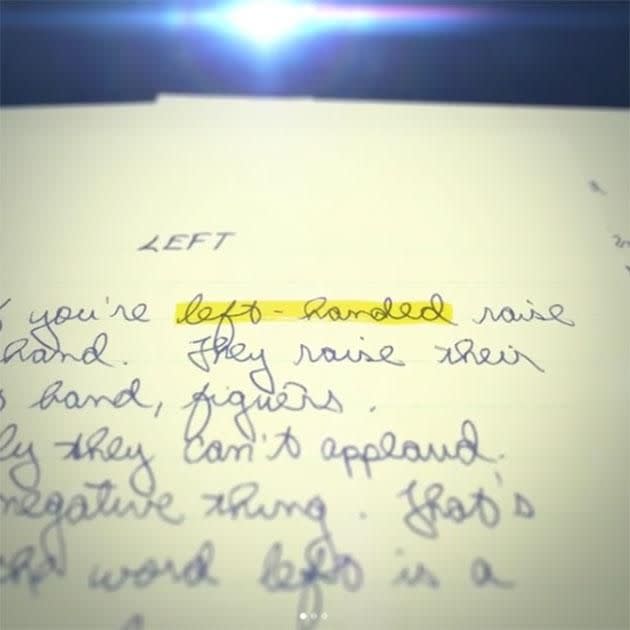 LEFT
you're left-handed raise
hand. They raise their
hand, figuers.
ly they can't applaud.
negative thing. That's
the word left is a